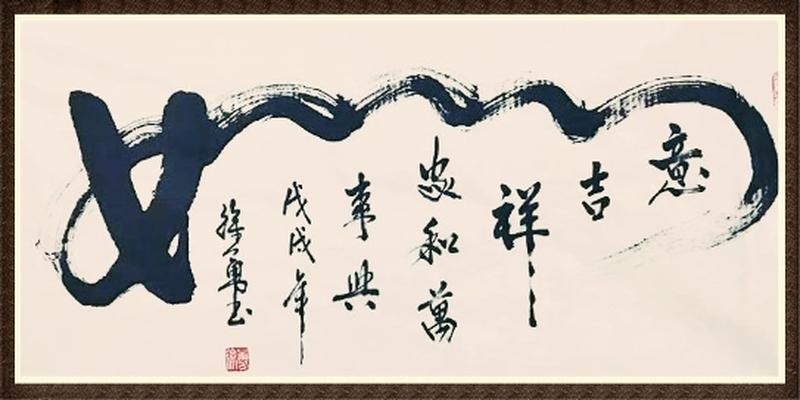 如
意
吉
祥
家和萬
事興
戊戌年
徐